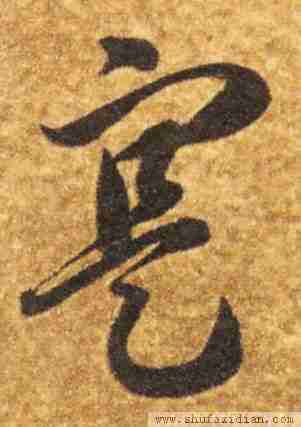 寔
www.shufazidian.com